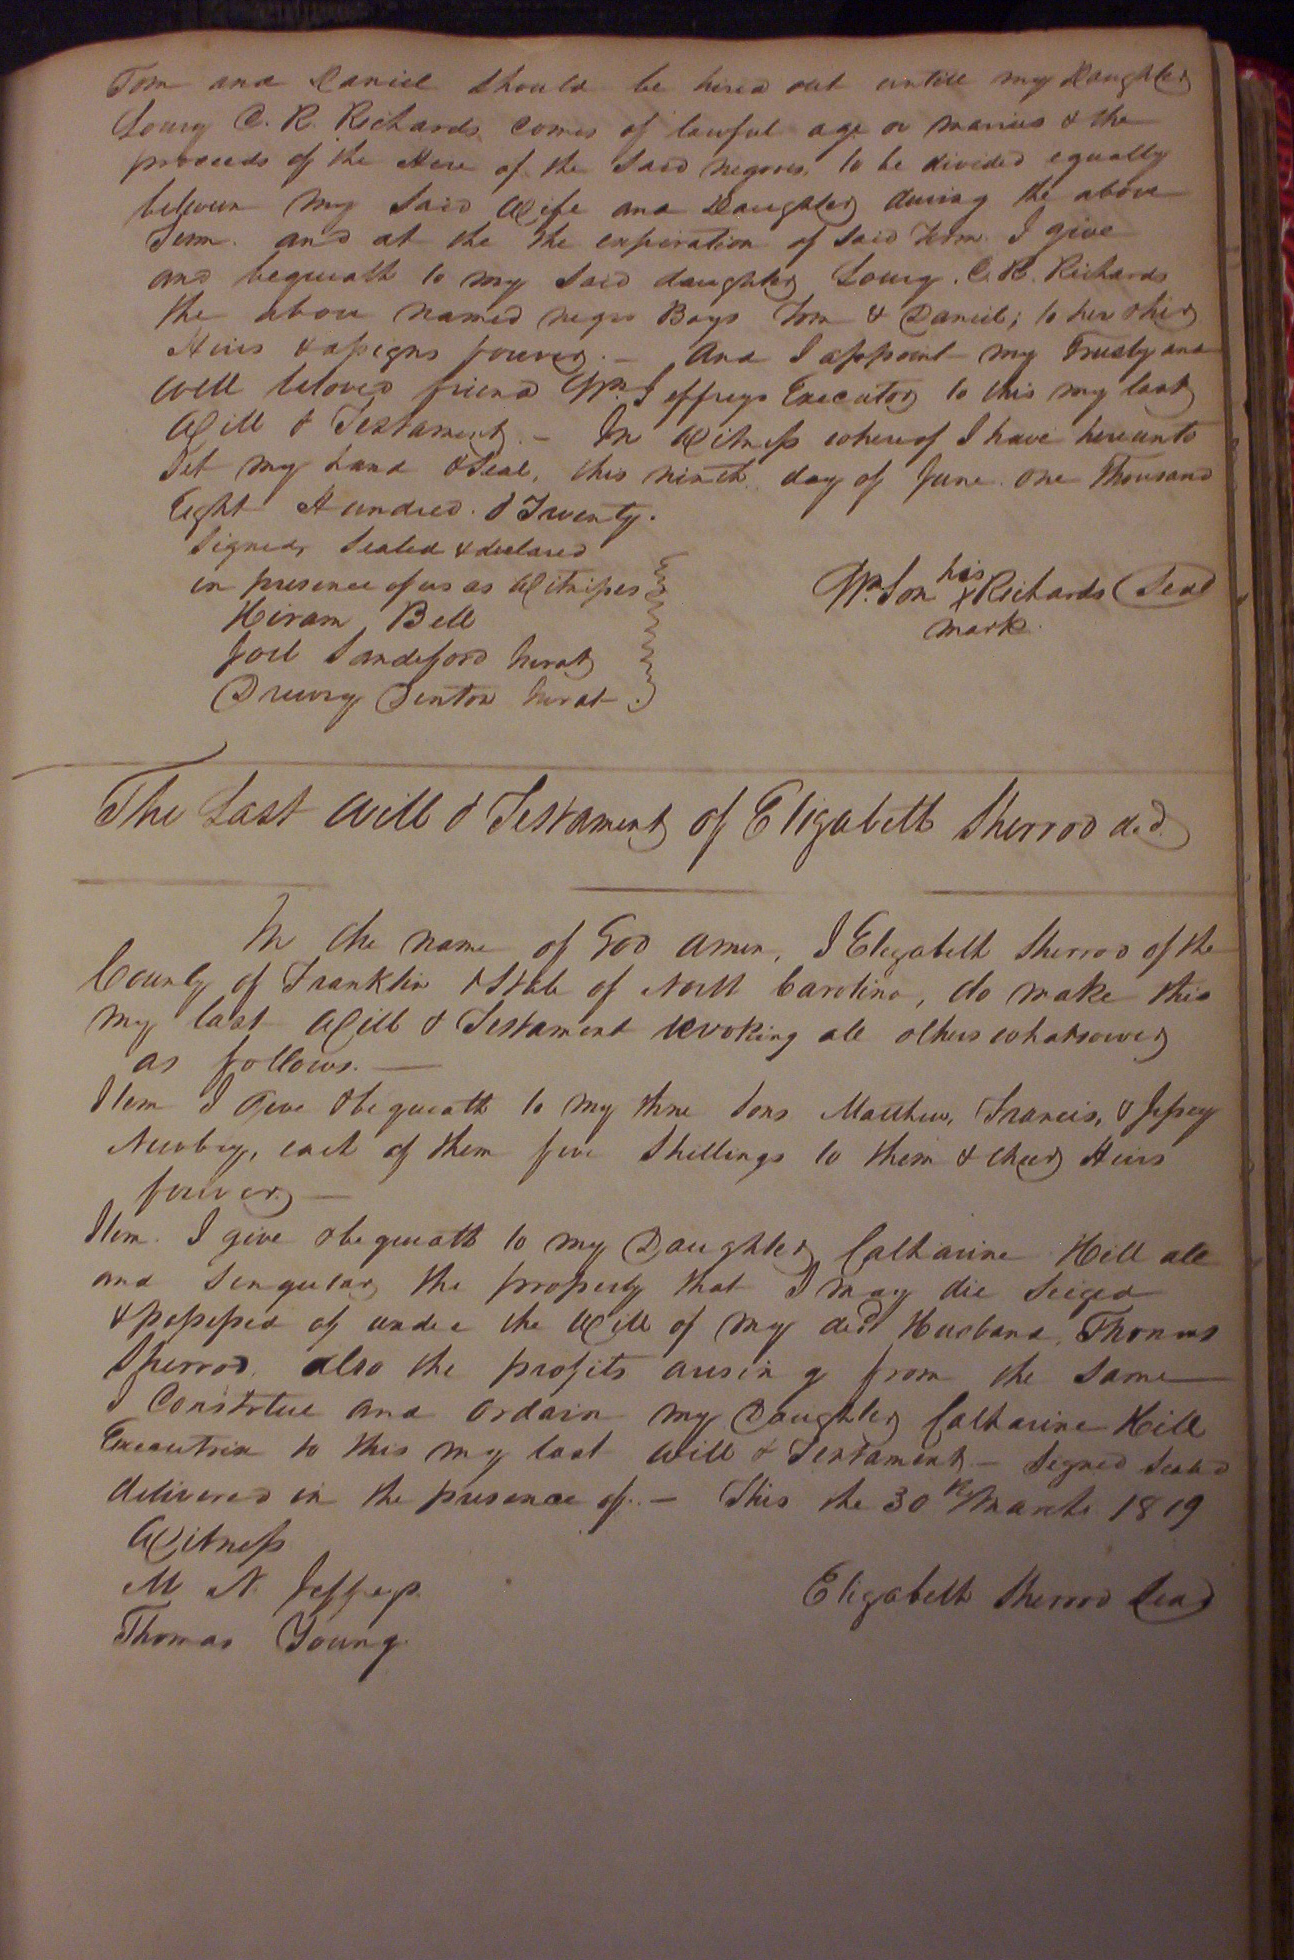 Tom and Daniel should be hired out untill my Daughter
Loury C. R. Richards comes of lawful age or marries & the
proceeds of the Hire of the said negroes, to be divided equally
between my said Wife and Daughter during the above
Term. and at the the expiration of said Term. I give
and bequeath to my said daughter Loury. C. R. Richards
the above named negro Boys Tom & Daniel; to her & her
Heirs & assigns forever. — And I appoint my Trusty and
well beloved friend Wm. Jeffreys Executor to this my last
Will & Testament. — In Witness whereof I have hereunto
Set my hand & Seal, this ninth day of June one Thousand
Eight Hundred & Twenty.
Signed, Sealed & declared
in presence of us as Witnesses
Hiram Bell
Joel Sandeford Jurat
Drewry Denton Jurat
Wm. Son his X Richards Seal
mark.
The Last Will & Testament of Elizabeth Sherrod decd.
In the name of God Amen, I Elizabeth Sherrod of the
County of Franklin & State of North Carolina, do make this
my last Will & Testament revoking all others whatsoever
as follows. —
Item I Give & bequeath to my three Sons Matthew, Francis, & Jessey
Newbey, each of them five Shillings to them & their Heirs
forever. —
Item. I give & bequeath to my Daughter Catharine Hill all
and Singular the property that I may die Seized
& possessed of under the Will of my decd. Husband, Thomas
Sherrod. also the profits arising from the same —
I Constitue and Ordain my Daughter Catharine Hill
Executrix to this my last will & Testament — Signed Sealed
delivered in the presence of. — This the 30th March 1819
Witness
M N. Jeffreys.
Thomas Young.
Elizabeth Sherrod Seal